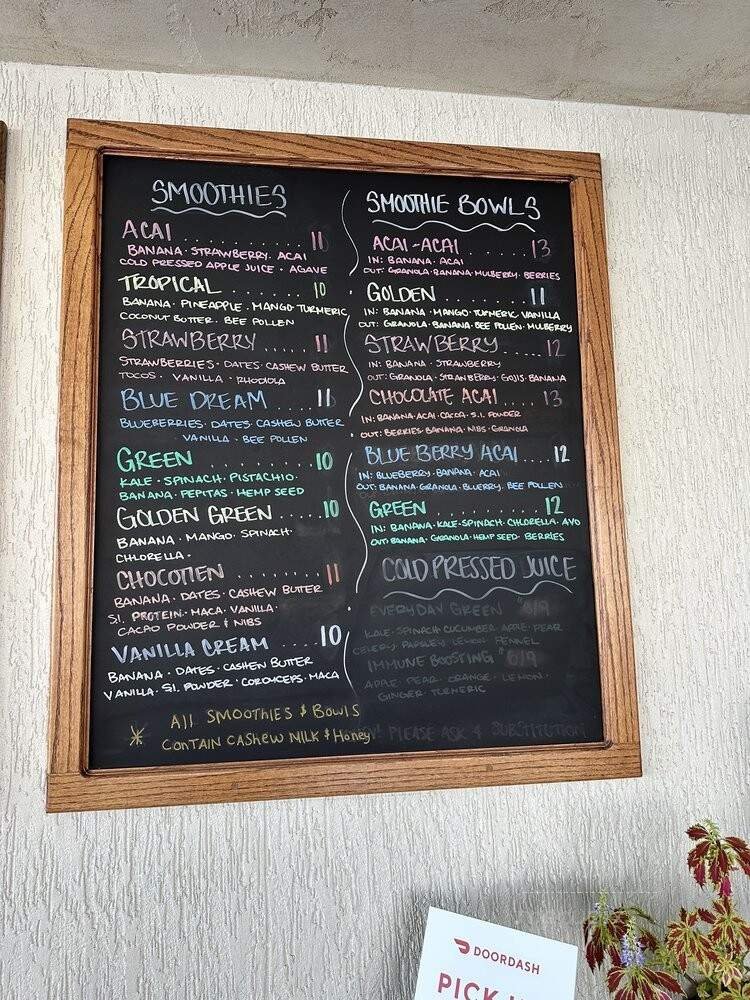 SMOOTHIES
ACAI ........ 11
BANANA · STRAWBERRY. ACAI
COLD PRESSED APPLE JUICE . AGAVE
TROPICAL ........ 10
BANANA · PINEAPPLE · MANGO · TURMERIC
COCONUT BUTTER . BEE POLLEN
STRAWBERRY ..... 11
STRAWBERRIES · DATES · CASHEW BUTTER
TOCOS · VANILLA · RHODIOLA
BLUE DREAM .... 11
BLUEBERRIES · DATES · CASHEW BUTTER
VANILLA · BEE POLLEN
GREEN ........ 10
KALE · SPINACH · PISTACHIO ·
BANANA · PEPITAS · HEMP SEED
GOLDEN GREEN .... 10
BANANA · MANGO · SPINACH ·
CHLORELLA ·
CHOCOTIEN ........ 11
BANANA . DATES · CASHEW BUTTER
S.I. PROTEIN · MACA · VANILLA ·
CACAO POWDER & NIBS
VANILLA CREAM .... 10
BANANA · DATES · CASHEW BUTTER
VANILLA · S.I. POWDER · CORDYCEPS · MACA
* All SMOOTHIES & BOWLS
CONTAIN CASHEW MILK & HONEY
SMOOTHIE BOWLS
ACAI-ACAI ........ 13
IN: BANANA · ACAI
OUT: GRANOLA · BANANA · MULBERRY · BERRIES
GOLDEN ........ 11
IN: BANANA · MANGO · TURMERIC VANILLA
OUT: GRANOLA · BANANA · BEE POLLEN · MULBERRY
STRAWBERRY .... 12
IN: BANANA · STRAWBERRY
OUT: GRANOLA · STRAWBERRY · GOJIS · BANANA
CHOCOLATE ACAI .... 13
IN: BANANA · ACAI · CACOA · S.I. POWDER
OUT: BERRIES · BANANA · NIBS · GRANOLA
BLUE BERRY ACAI .... 12
IN: BLUEBERRY · BANANA · ACAI
OUT: BANANA · GRANOLA · BLUERRY. BEE POLLEN
GREEN ........ 12
IN: BANANA · KALE · SPINACH · CHLORELLA · AVO
OUT: BANANA · GRANOLA · HEMP SEED · BERRIES
COLD PRESSED JUICE
EVERYDAY GREEN 6/9
KALE · SPINACH CUCUMBER APPLE · PEAR
CELERY PARSLEY LEMON FENNEL
IMMUNE BOOSTING 6/9
APPLE · PEAR · ORANGE · LEMON ·
GINGER · TURMERIC
PLEASE ASK 4 SUBSTITUTION
DOORDASH
PICK